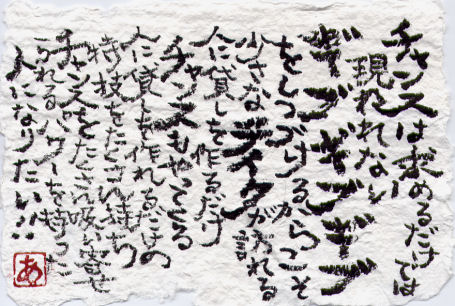 チャンスは求めるだけでは
現われない
ギブギブギブ
をしつづけるからこそ
小さなテイクが訪れる
人に貸しを作るだけ
チャンスもやってくる
人に貸しを作れるだけの
特技をたくさん持ち
チャンスをたくさん吸い寄せ
られるパワーを持った
人になりたい!!
あ